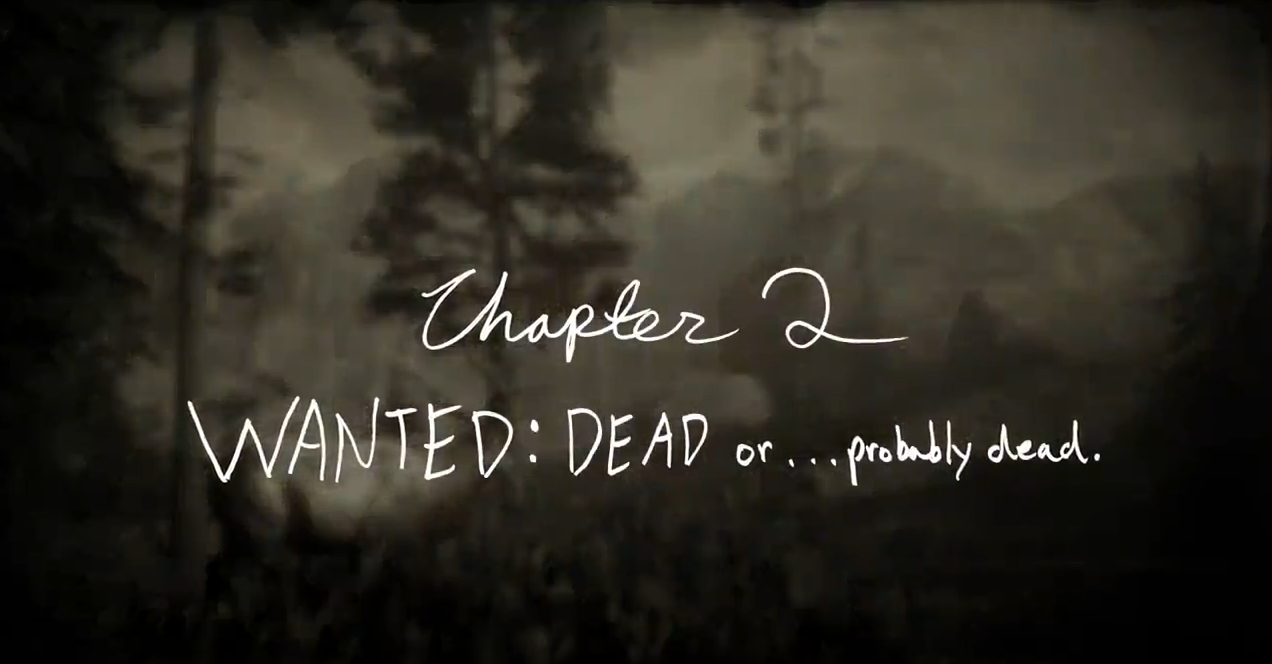 Chapter 2
WANTED: DEAD or...probably dead.